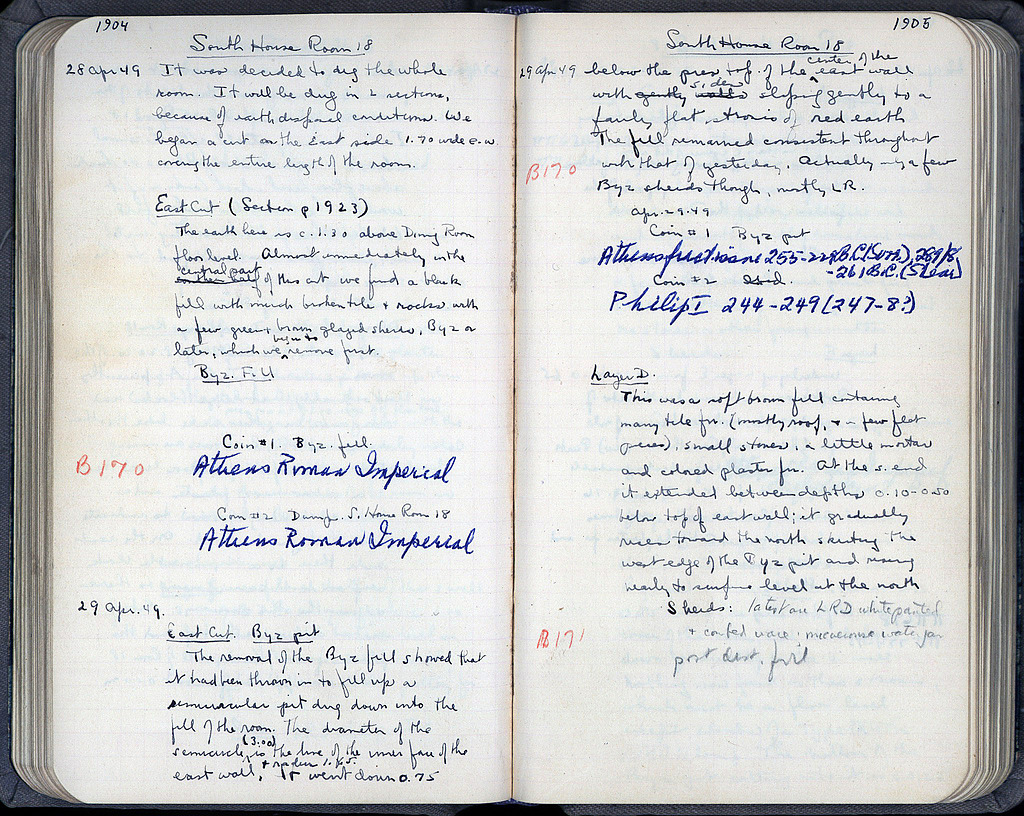 1904
South House Room 18
28 Apr 49 It was decided to dig the whole
room. It will be dug in 2 sections,
because of earth disposal conditions. We
began a cut on the East side 1.70 wide e-w
covering the entire length of the room.
East Cut (Section p 1923)
The earth here is c. 1.30 above Dining Room
floor level. Almost immediately in the
central part
of this cut we find a black
fill with much broken tile & rocks with
a few green & brown glazed sherds, Byz or
begin to
later, which we remove first.
Byz. Fill
Coin #1. Byz. fill.
B 170
Athens Roman Imperial
Coin #2 Dump. S. House Room 18
Athens Roman Imperial
29 Apr. 49.
East Cut. Byz pit
The removal of the Byz fill showed that
it had been thrown in to fill up a
semicircular pit dug down into the
fill of the room. The diameter of the
(3.00)
semicircle is the line of the inner face of the
& radius 1.65.
east wall. It went down 0.75
1905
South House Room 18
center of the
29 Apr 49 below the pres. top of the east wall
sides
with gently walls sloping gently to a
fairly flat stosis of red earth
The fill remained consistent throughout
B170
with that of yesterday. Actually only a few
Byz sherds though, mostly LR.
Apr. 29. 49
Coin #1 Byz pit
Athens fractions 255-229 B.C. (Svor.),
-261 B.C. (Shear)
Coin #2 Ibid.
Philip I 244-249 (247-8?)
Layer D.
This was a soft brown fill containing
many tile fr. (mostly roof, & a few flat
pieces), small stones, a little mortar
and colored plaster fr. At the s. end
it extended between depths 0.10-0.50
below top of east wall; it gradually
rises toward the north skirting the
west edge of the Byz pit and rising
nearly to surface level at the north
Sherds: latest are LRD white painted
B171
& combed ware; micaceous water jar
post dest. fill